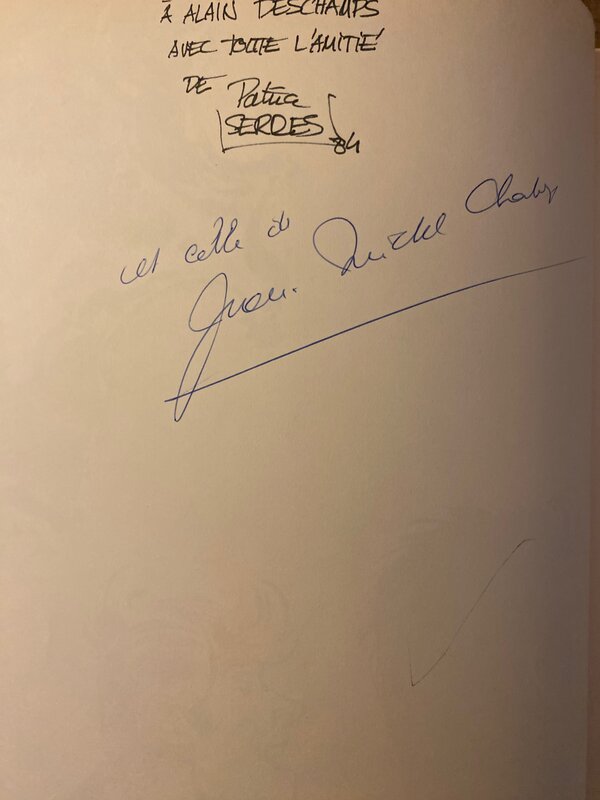 À ALAIN DESCHAMPS
AVEC TOUTE L'AMITIÉ
DE Patrice
SERRES
84
et celle de
Jean-Michel Charlier